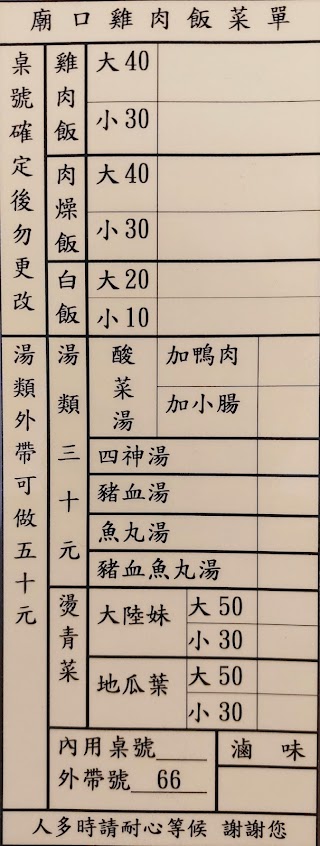 廟口雞肉飯菜單
桌號確定後勿更改
雞肉飯
大 40
小 30
肉燥飯
大 40
小 30
白飯
大 20
小 10
湯類外帶可做五十元
湯類三十元
酸菜湯
加鴨肉
加小腸
四神湯
豬血湯
魚丸湯
豬血魚丸湯
燙青菜
大陸妹
大 50
小 30
地瓜葉
大 50
小 30
內用桌號
外帶號 66
滷味
人多時請耐心等候 謝謝您